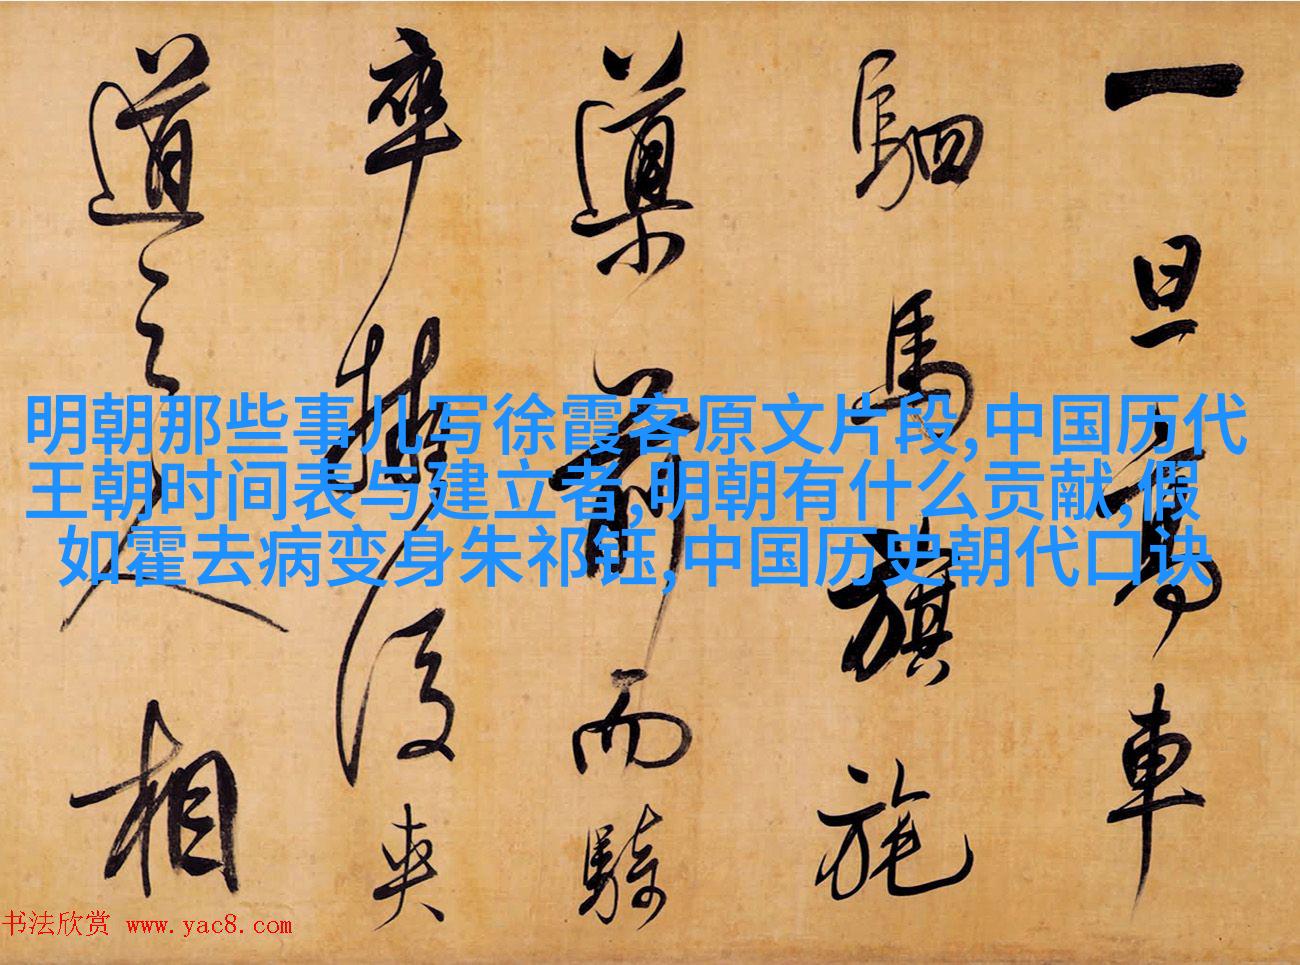 一旦高車
駟馬旗旄
導前而騎
卒擁後夾
道之人相
明朝那些事儿写徐霞客原文片段,中国历代
王朝时间表与建立者,明朝有什么贡献,假
如霍去病变身朱祁钰,中国历史朝代口诀
书法欣赏 www.yac8.com